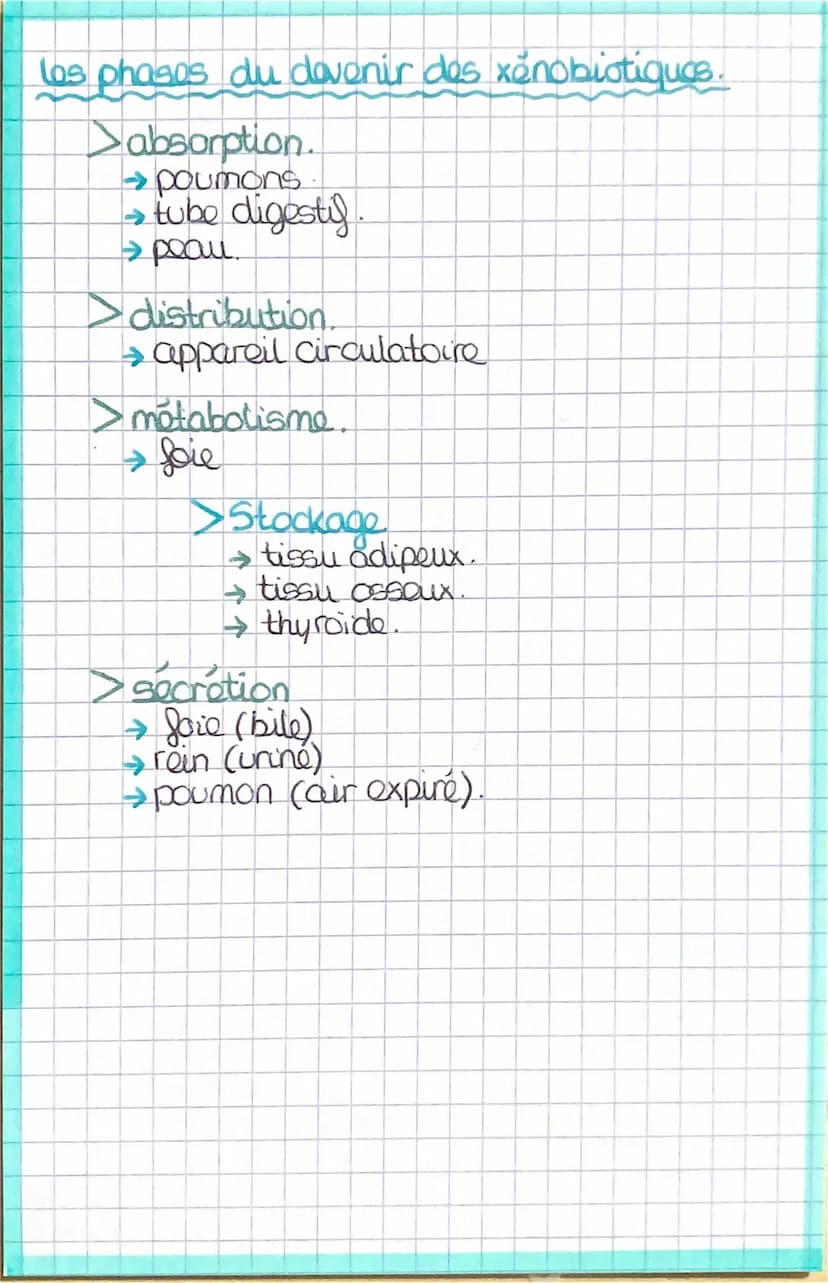 les phases du devenir des xénobiotiques.
>absorption.
→ poumons.
→ tube digestif.
→ peau.
>distribution.
→ appareil circulatoire
>métabolisme.
→ foie
>Stockage
→ tissu adipeux.
→ tissu osseux.
→ thyroïde.
>sécrétion
→ foie (bile)
→ rein (urine)
→ poumon (air expiré).